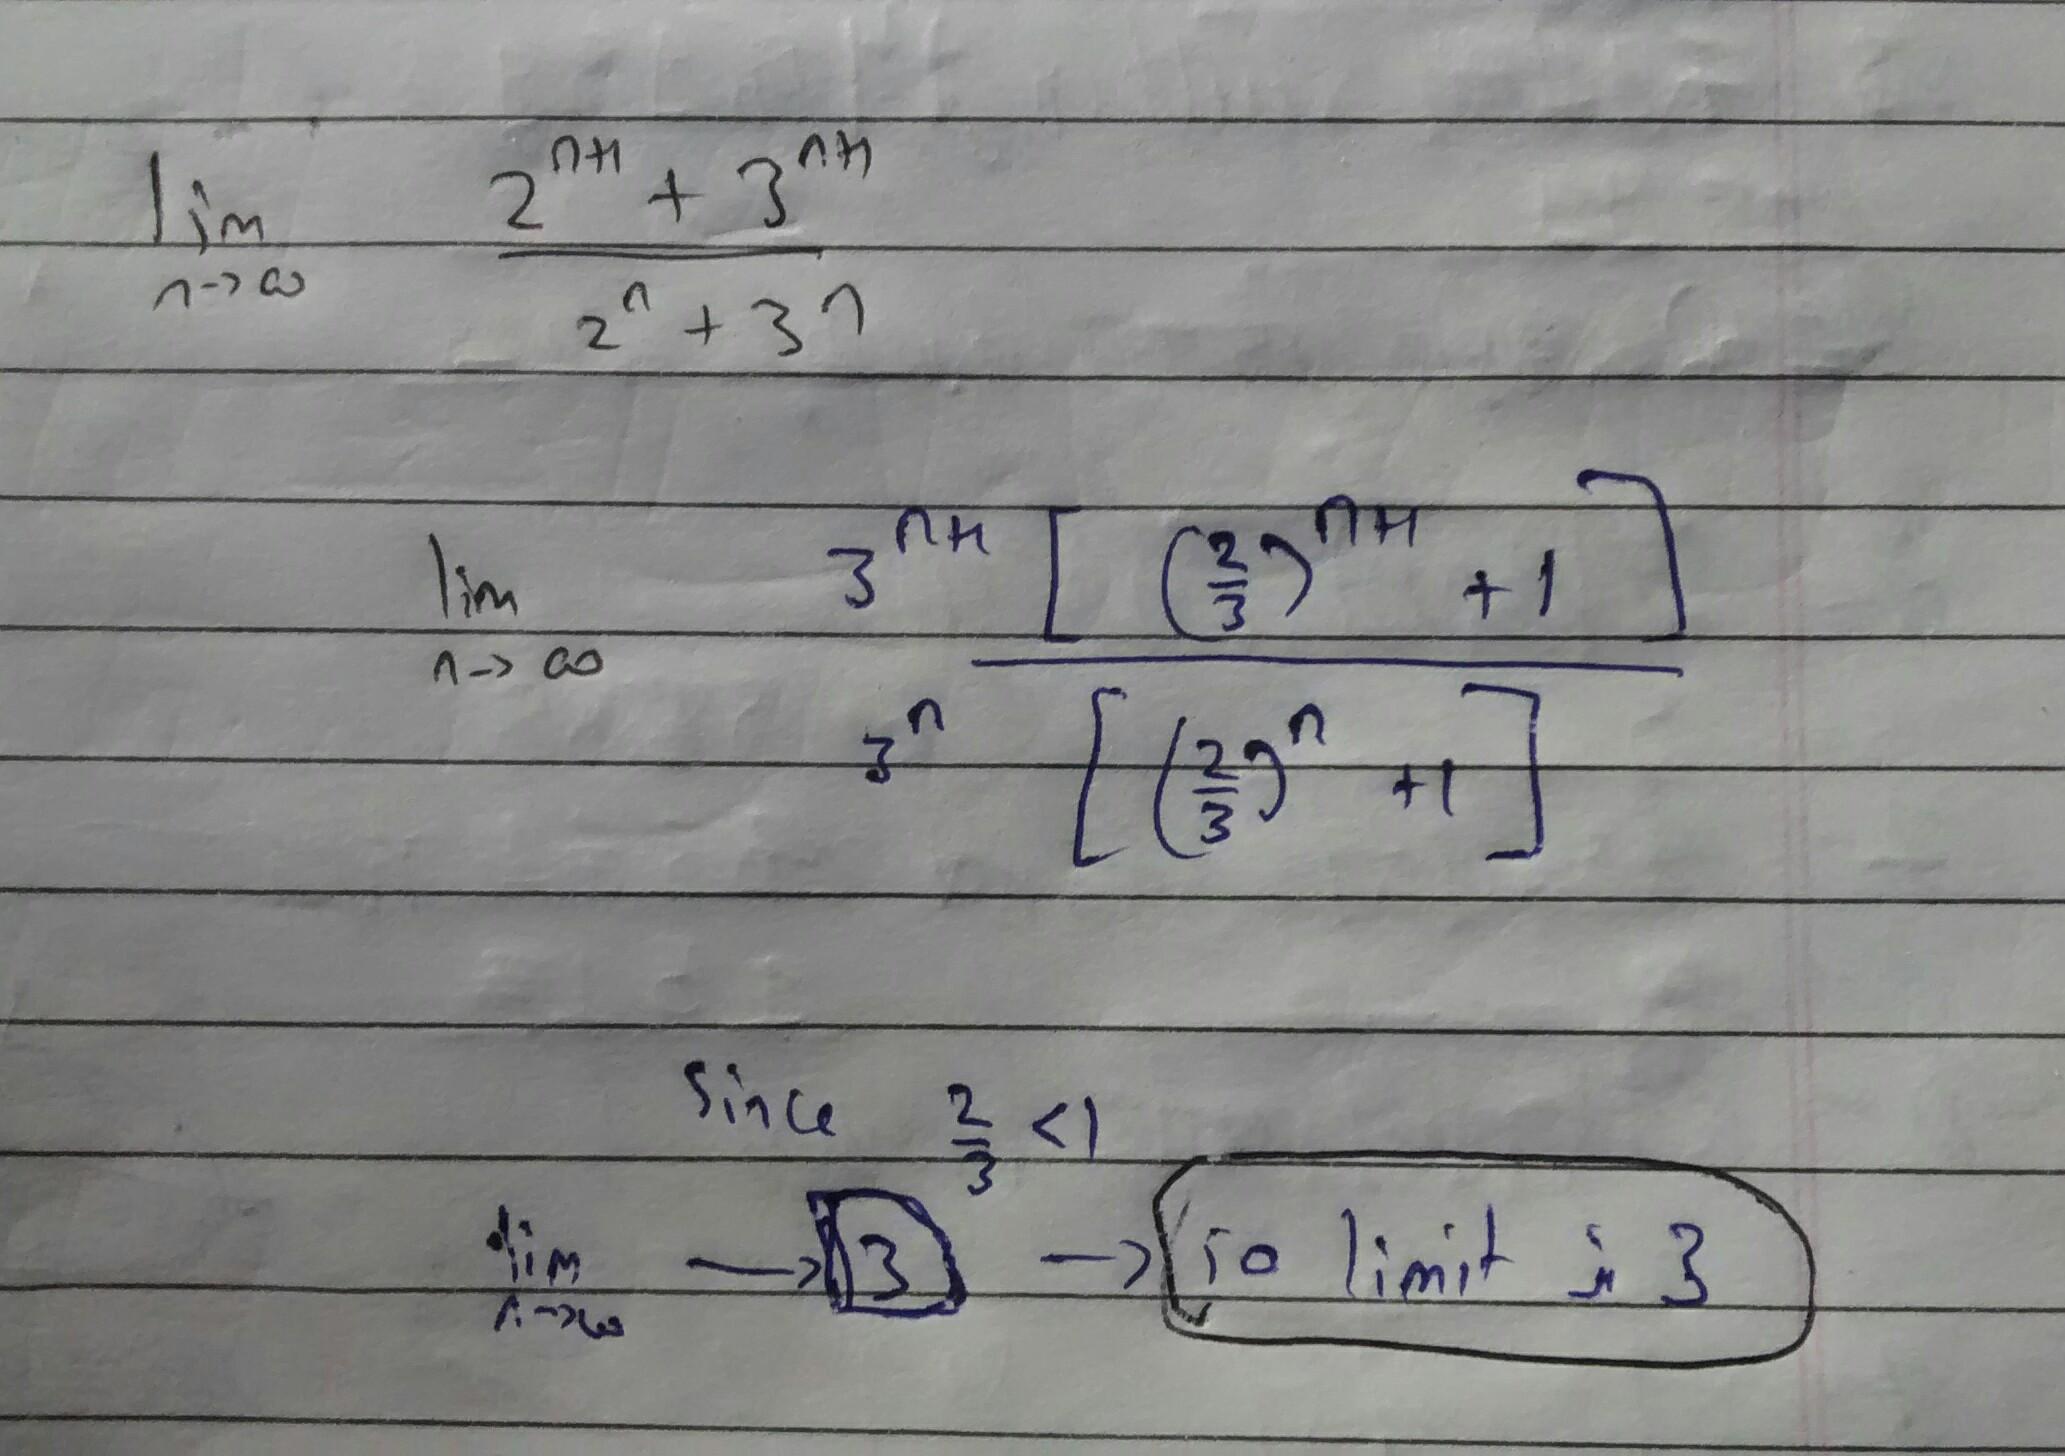 lim n→∞ (2^{n+1} + 3^{n+1}) / (2^n + 3^n)
lim n→∞ 3^{n+1} [(2/3)^{n+1} + 1] / 3^n [(2/3)^n + 1]
Since 2/3 < 1
lim n→∞ → 3 → so limit is 3